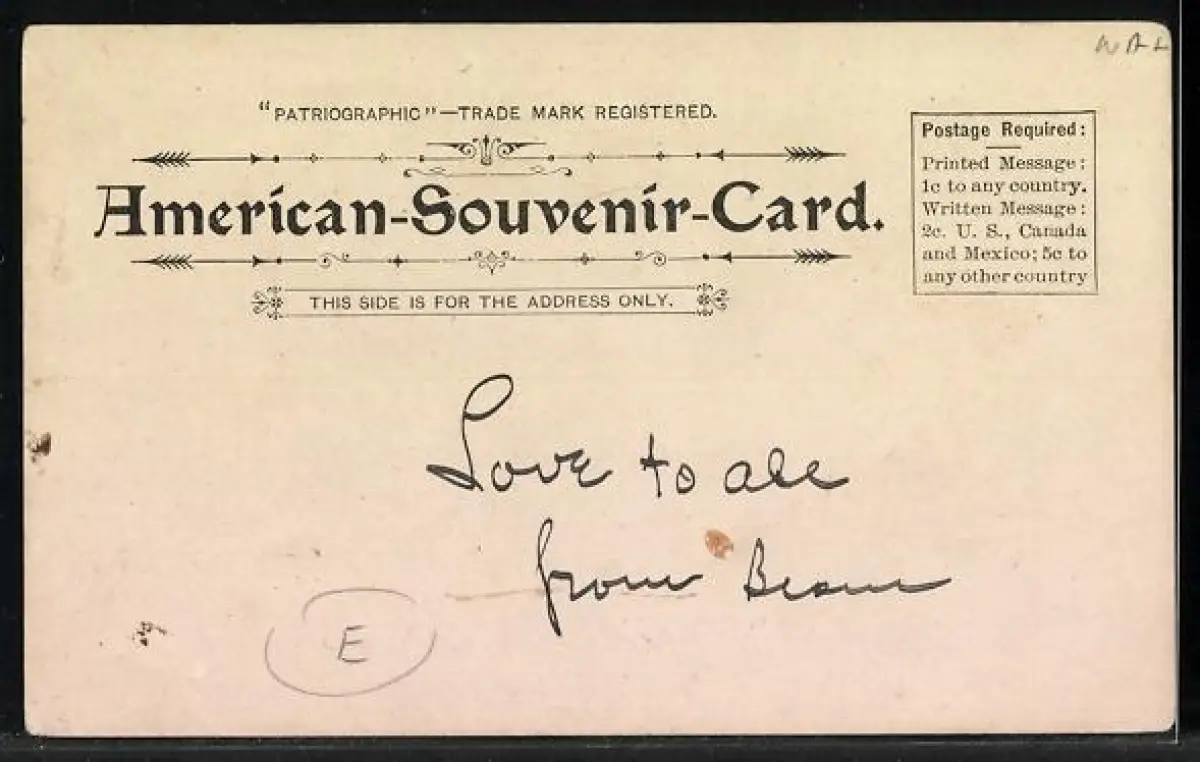 "PATRIOGRAPHIC"—TRADE MARK REGISTERED.
American-Souvenir-Card.
THIS SIDE IS FOR THE ADDRESS ONLY.
Postage Required:
Printed Message:
1c to any country.
Written Message:
2c. U. S., Canada
and Mexico; 5c to
any other country
Love to all
from
E